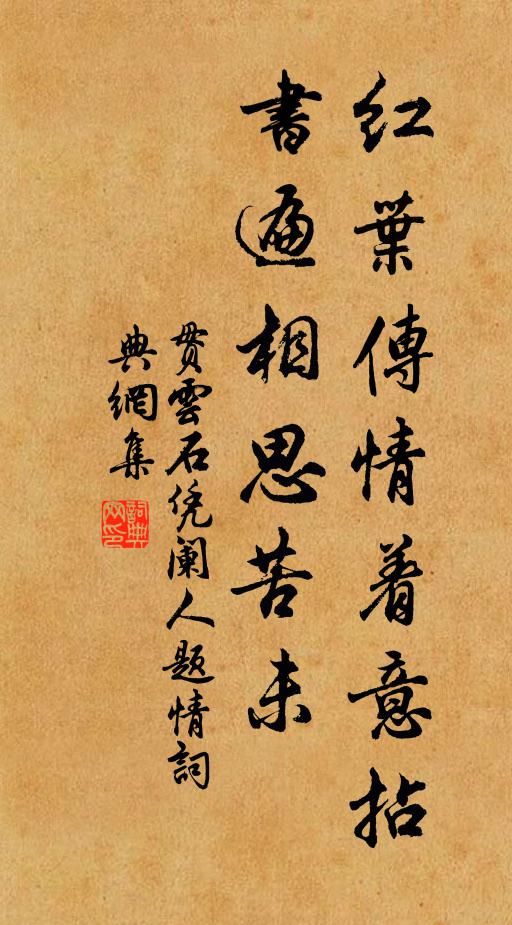 紅葉傳情着意拈
書遍相思苦未
貫雲石凭闌人題情詞
典網集
詞典網印